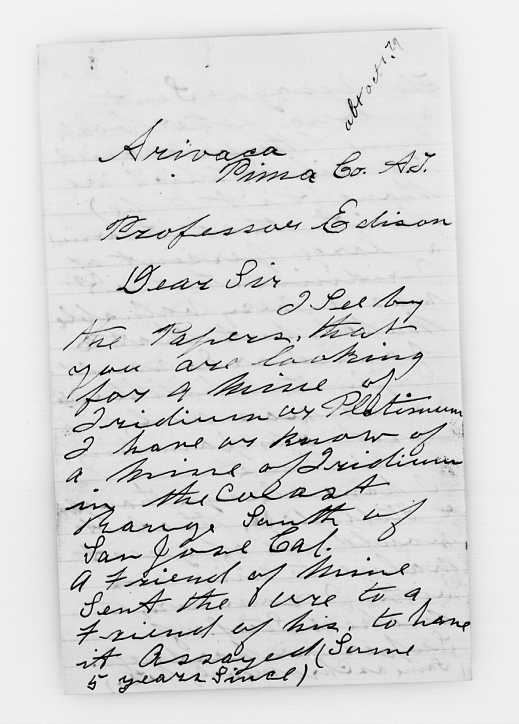 abt oct 1 79
Arivaca
Pima Co. A.T.
Professor Edison
Dear Sir
I See by
the Papers, that
you are looking
for a Mine of
Iridium or Pletinum
I have or know of
a Mine of Iridium
in the Coast
Range South of
San Jose Cal.
A Friend of Mine
Sent the ore to a
Friend of his, to have
it Assayed (Some
5 years Since)